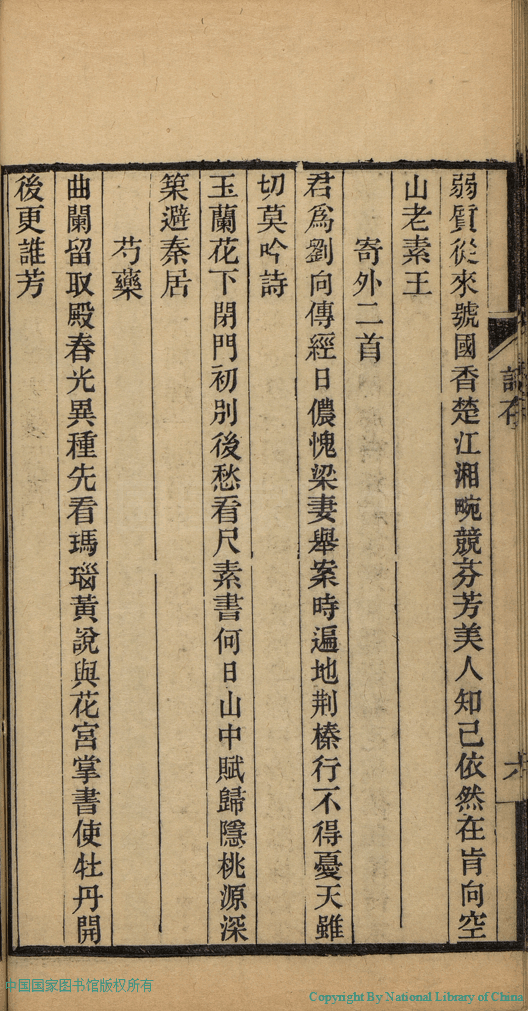 弱質從來號國香楚江湘畹競芬芳美人知己依然在肯向空
山老素王
寄外二首
君爲劉向傳經日儂愧梁妻舉案時遍地荆榛行不得憂天雖
切莫吟詩
玉蘭花下閉門初別後愁看尺素書何日山中賦歸隱桃源深
築避秦居
芍藥
曲闌留取殿春光異種先看瑪瑙黃說與花宮掌書使牡丹開
後更誰芳
中国国家图书馆版权所有
Copyright By National Library of China